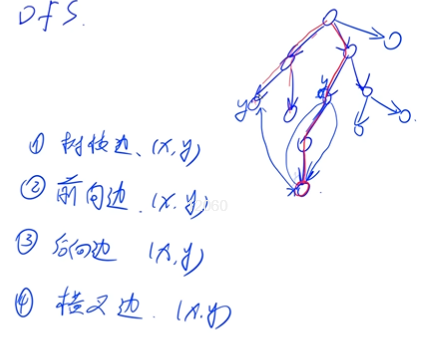 DFS.
① 树枝边、(x,y)
② 前向边.(x.y)
③ 后向边 (x,y)
④ 横叉边.(x.y)
y
y
x